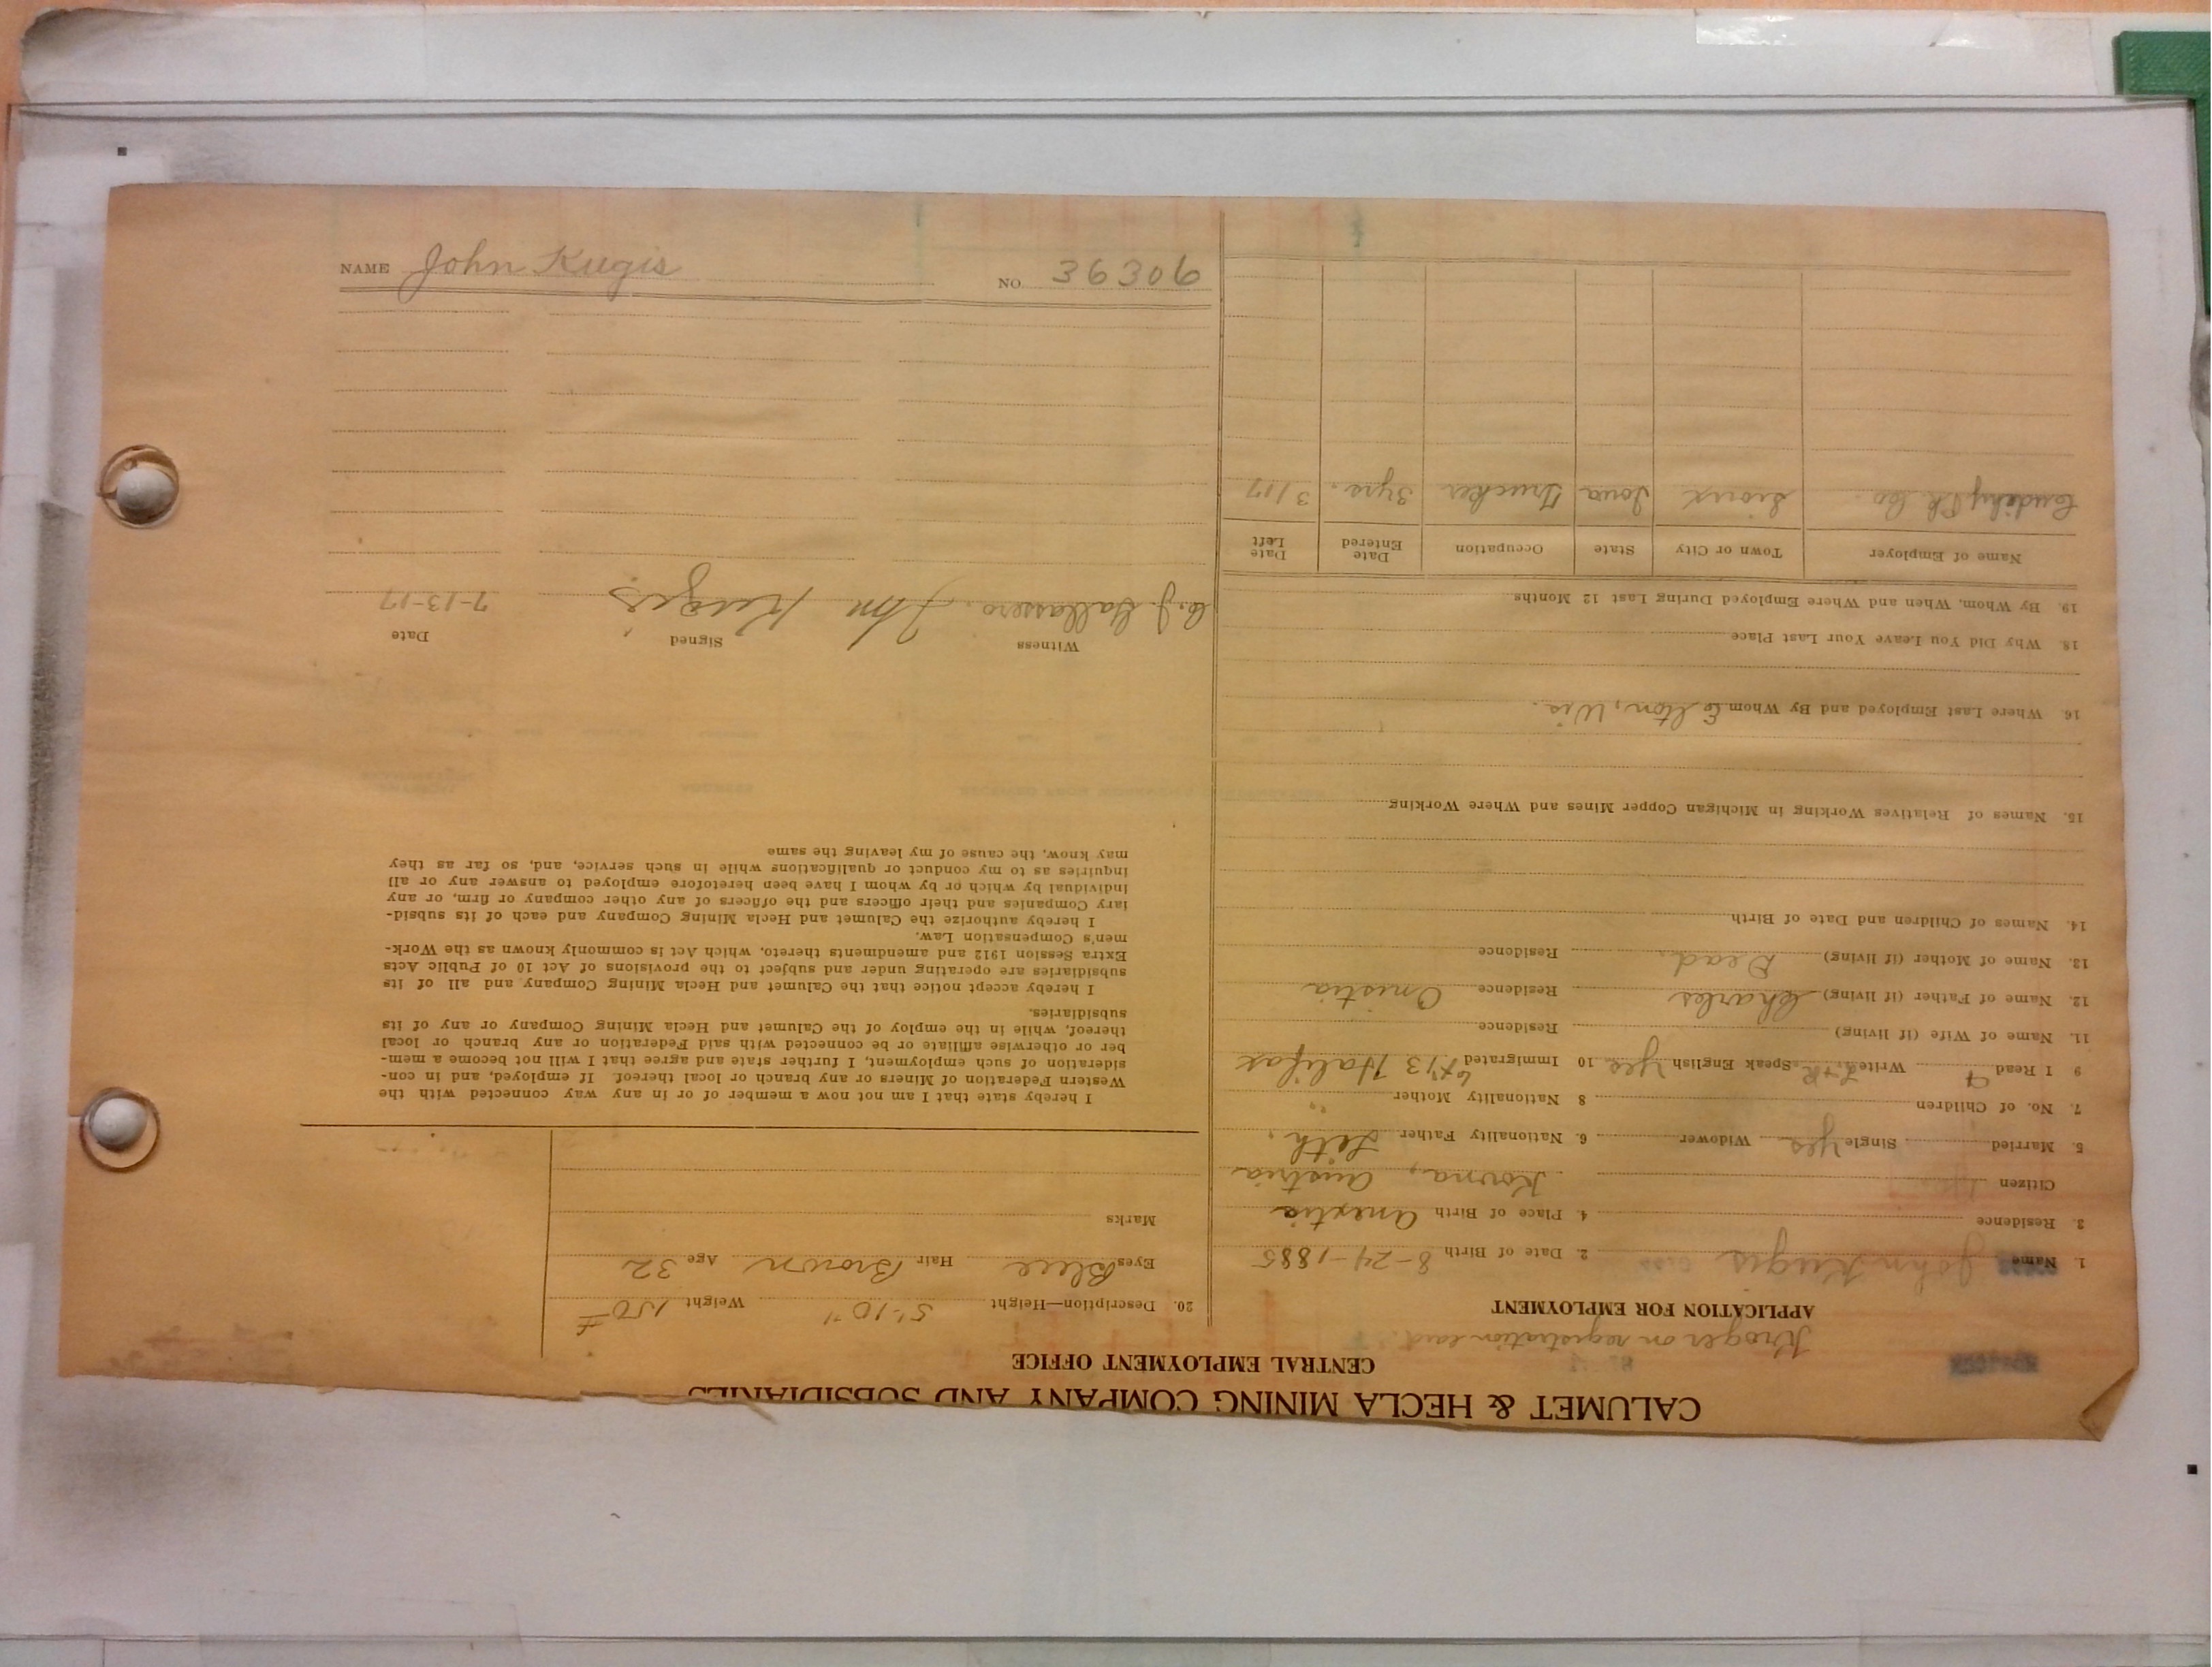 CALUMET & HECLA MINING COMPANY AND SUBSIDIARIES
CENTRAL EMPLOYMENT OFFICE
Kroger on registration card.
APPLICATION FOR EMPLOYMENT
1. Name John Kugis 2. Date of Birth 8-24-1885
3. Residence 4. Place of Birth Austria
Citizen Kovna, Austria
5. Married Single Yes Widower 6. Nationality Father Lith.
7. No. of Children 8 Nationality Mother "
9 I Read Write Speak English Yes 10 Immigrated 6/13 Halifax
11. Name of Wife (if living) Residence
12. Name of Father (if living) Charles Residence
13. Name of Mother (if living) Dead. Residence
14. Names of Children and Date of Birth
15. Names of Relatives Working in Michigan Copper Mines and Where Working
16. Where Last Employed and By Whom Elton, Wis.
18. Why Did You Leave Your Last Place
19. By Whom, When and Where Employed During Last 12 Months
Name of Employer Town or City State Occupation Date Entered Date Left
Cudahy Pk Co. Sioux Iowa Trucker 3 yrs. 3/17
20. Description—Height 5'-10" Weight 150#
Eyes Blue Hair Brown Age 32
Marks
I hereby state that I am not now a member of or in any way connected with the
Western Federation of Miners or any branch or local thereof. If employed, and in con-
sideration of such employment, I further state and agree that I will not become a mem-
ber or otherwise affiliate or be connected with said Federation or any branch or local
thereof, while in the employ of the Calumet and Hecla Mining Company or any of its
subsidiaries.
I hereby accept notice that the Calumet and Hecla Mining Company and all of its
subsidiaries are operating under and subject to the provisions of Act 10 of Public Acts
Extra Session 1912 and amendments thereto, which Act is commonly known as the Work-
men's Compensation Law.
I hereby authorize the Calumet and Hecla Mining Company and each of its subsid-
iary Companies and their officers and the officers of any other company or firm, or any
individual by which or by whom I have been heretofore employed to answer any or all
inquiries as to my conduct or qualifications while in such service, and, so far as they
may know, the cause of my leaving the same
Witness Signed Date
John Kugis 7-13-17
NAME John Kugis NO. 36306